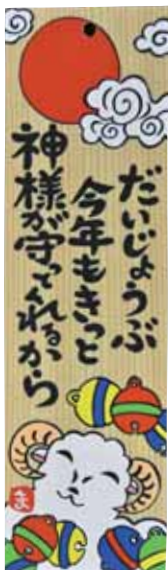 だいじょうぶ
今年もきっと
神様が守ってくれるから
ま